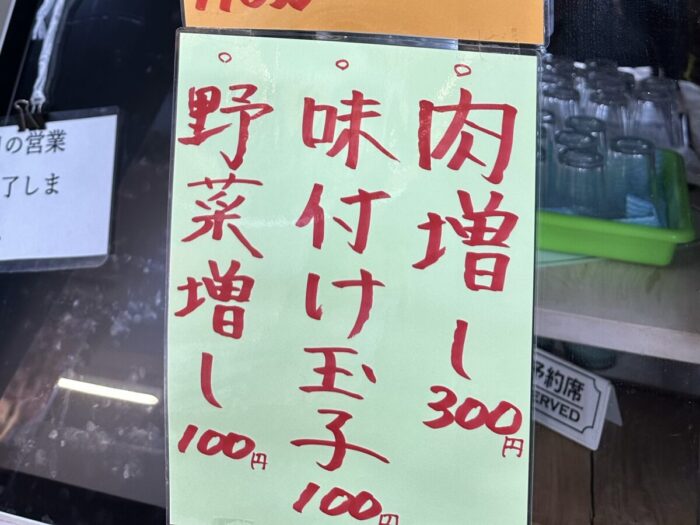 肉増し300円
味付け玉子100円
野菜増し100円
の営業
了しま
予約席
ERVED